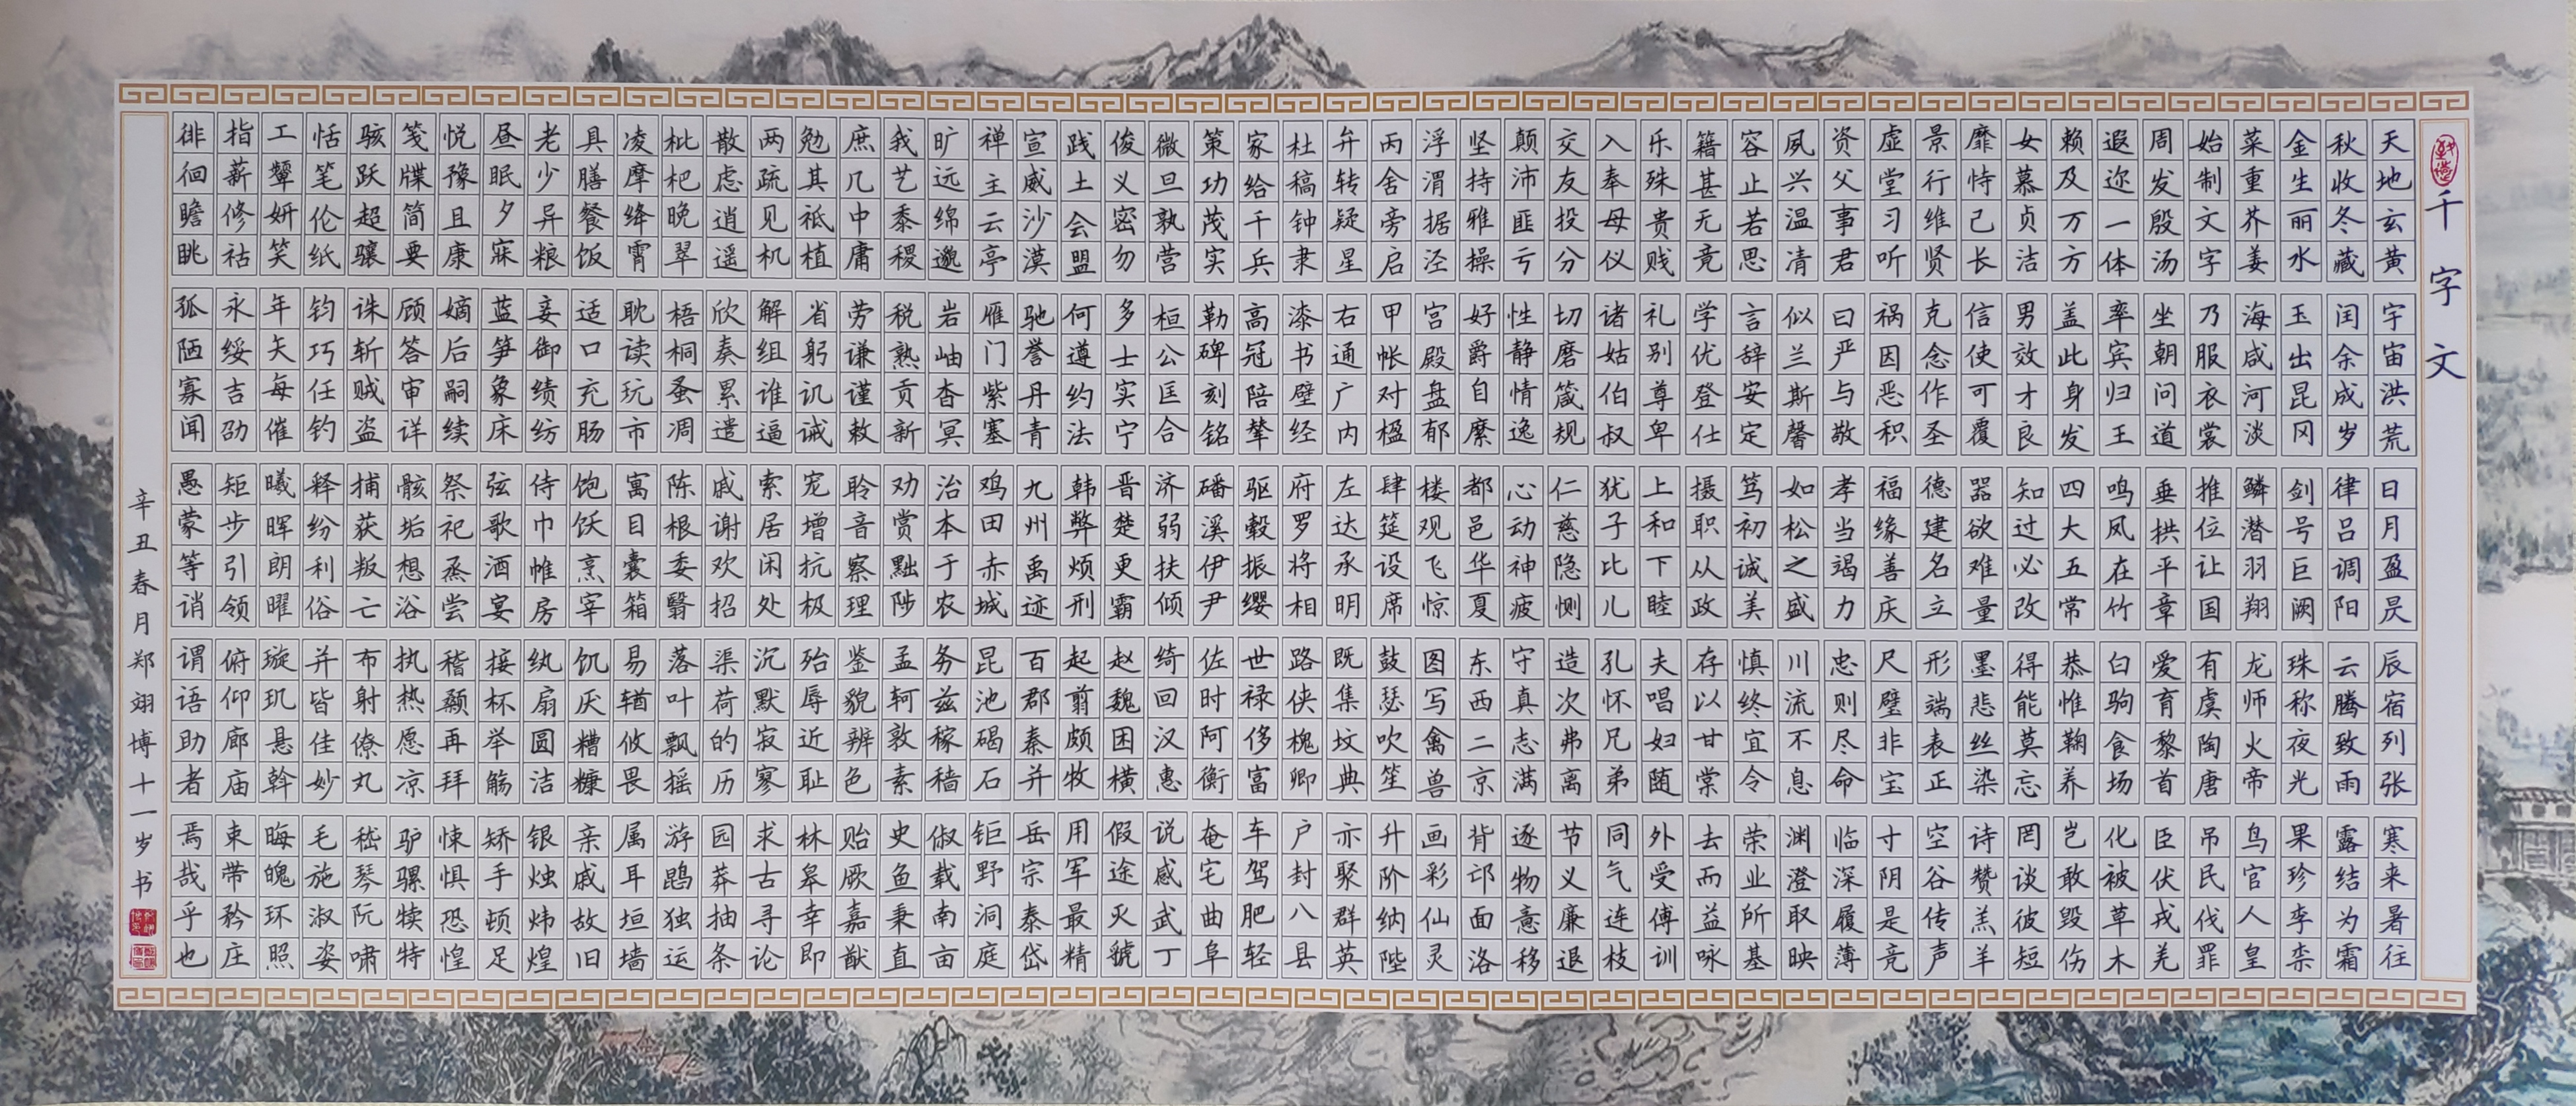 千字文
天地玄黄宇宙洪荒日月盈昃辰宿列张寒来暑往
秋收冬藏闰余成岁律吕调阳云腾致雨露结为霜
金生丽水玉出昆冈剑号巨阙珠称夜光果珍李柰
菜重芥姜海咸河淡鳞潜羽翔龙师火帝鸟官人皇
始制文字乃服衣裳推位让国有虞陶唐吊民伐罪
周发殷汤坐朝问道垂拱平章爱育黎首臣伏戎羌
遐迩一体率宾归王鸣凤在竹白驹食场化被草木
赖及万方盖此身发四大五常恭惟鞠养岂敢毁伤
女慕贞洁男效才良知过必改得能莫忘罔谈彼短
靡恃己长信使可覆器欲难量墨悲丝染诗赞羔羊
景行维贤克念作圣德建名立形端表正空谷传声
虚堂习听祸因恶积福缘善庆尺璧非宝寸阴是竞
资父事君曰严与敬孝当竭力忠则尽命临深履薄
夙兴温清似兰斯馨如松之盛川流不息渊澄取映
容止若思言辞安定笃初诚美慎终宜令荣业所基
籍甚无竟学优登仕摄职从政存以甘棠去而益咏
乐殊贵贱礼别尊卑上和下睦夫唱妇随外受傅训
入奉母仪诸姑伯叔犹子比儿孔怀兄弟同气连枝
交友投分切磨箴规仁慈隐恻造次弗离节义廉退
颠沛匪亏性静情逸心动神疲守真志满逐物意移
坚持雅操好爵自縻都邑华夏东西二京背邙面洛
浮渭据泾宫殿盘郁楼观飞惊图写禽兽画彩仙灵
丙舍旁启甲帐对楹肆筵设席鼓瑟吹笙升阶纳陛
弁转疑星右通广内左达承明既集坟典亦聚群英
杜稿钟隶漆书壁经府罗将相路侠槐卿户封八县
家给千兵高冠陪辇驱毂振缨世禄侈富车驾肥轻
策功茂实勒碑刻铭磻溪伊尹佐时阿衡奄宅曲阜
微旦孰营桓公匡合济弱扶倾绮回汉惠说感武丁
俊义密勿多士实宁晋楚更霸赵魏困横假途灭虢
践土会盟何遵约法韩弊烦刑起翦颇牧用军最精
宣威沙漠驰誉丹青九州禹迹百郡秦并岳宗泰岱
禅主云亭雁门紫塞鸡田赤城昆池碣石钜野洞庭
旷远绵邈岩岫杳冥治本于农务兹稼穑俶载南亩
我艺黍稷税熟贡新劝赏黜陟孟轲敦素史鱼秉直
庶几中庸劳谦谨敕聆音察理鉴貌辨色贻厥嘉猷
勉其祗植省躬讥诫宠增抗极殆辱近耻林皋幸即
两疏见机解组谁逼索居闲处沉默寂寥求古寻论
散虑逍遥欣奏累遣戚谢欢招渠荷的历园莽抽条
枇杷晚翠梧桐蚤凋陈根委翳落叶飘摇游鹍独运
凌摩绛霄耽读玩市寓目囊箱易輶攸畏属耳垣墙
具膳餐饭适口充肠饱饫烹宰饥厌糟糠亲戚故旧
老少异粮妾御绩纺侍巾帷房纨扇圆洁银烛炜煌
昼眠夕寐蓝笋象床弦歌酒宴接杯举觞矫手顿足
悦豫且康嫡后嗣续祭祀烝尝稽颡再拜悚惧恐惶
笺牒简要顾答审详骸垢想浴执热愿凉驴骡犊特
骇跃超骧诛斩贼盗捕获叛亡布射僚丸嵇琴阮啸
恬笔伦纸钧巧任钓释纷利俗并皆佳妙毛施淑姿
工颦妍笑年矢每催曦晖朗曜璇玑悬斡晦魄环照
指薪修祜永绥吉劭矩步引领俯仰廊庙束带矜庄
徘徊瞻眺孤陋寡闻愚蒙等诮谓语助者焉哉乎也
辛丑春月郑翊博十一岁书